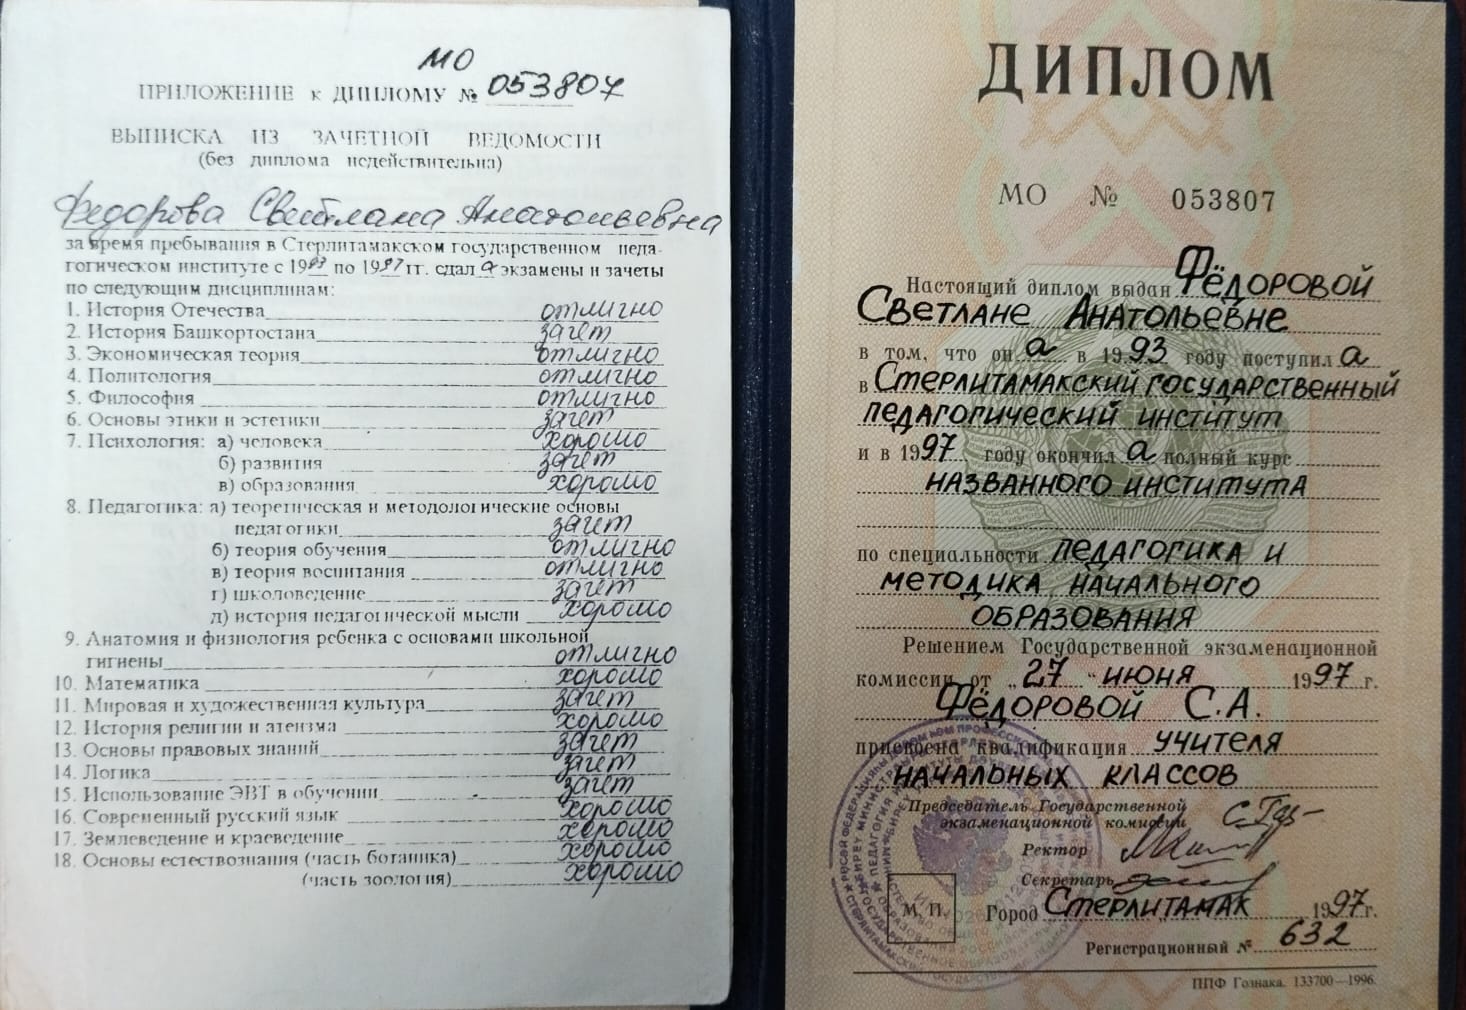 МО
ПРИЛОЖЕНИЕ к ДИПЛОМУ № 053807
ВЫПИСКА ИЗ ЗАЧЕТНОЙ ВЕДОМОСТИ
(без диплома недействительна)
Федорова Светлана Анатольевна
за время пребывания в Стерлитамакском государственном педа-
гогическом институте с 1993 по 1997 гг. сдала экзамены и зачеты
по следующим дисциплинам:
1. История Отечества отлично
2. История Башкортостана зачет
3. Экономическая теория отлично
4. Политология отлично
5. Философия отлично
6. Основы этики и эстетики зачет
7. Психология: а) человека хорошо
б) развития зачет
в) образования хорошо
8. Педагогика: а) теоретическая и методологические основы
педагогики зачет
б) теория обучения отлично
в) теория воспитания отлично
г) школоведение зачет
д) история педагогической мысли хорошо
9. Анатомия и физиология ребенка с основами школьной
гигиены отлично
10. Математика хорошо
11. Мировая и художественная культура зачет
12. История религии и атеизма хорошо
13. Основы правовых знаний зачет
14. Логика зачет
15. Использование ЭВТ в обучении зачет
16. Современный русский язык хорошо
17. Землеведение и краеведение хорошо
18. Основы естествознания (часть ботаника) хорошо
(часть зоология) хорошо
ДИПЛОМ
МО № 053807
Настоящий диплом выдан Фёдоровой
Светлане Анатольевне
в том, что она в 1993 году поступила
в Стерлитамакский государственный
педагогический институт
и в 1997 году окончила полный курс
названного института
по специальности педагогика и
методика начального
образования
Решением Государственной экзаменационной
комиссии от „27 " июня 1997 г.
Фёдоровой С.А.
присвоена квалификация учителя
начальных классов
Председатель Государственной
экзаменационной комиссии
Ректор
Секретарь
М. П.
Город Стерлитамак 1997 г.
Регистрационный № 632
ППФ Гознака. 133700—1996.